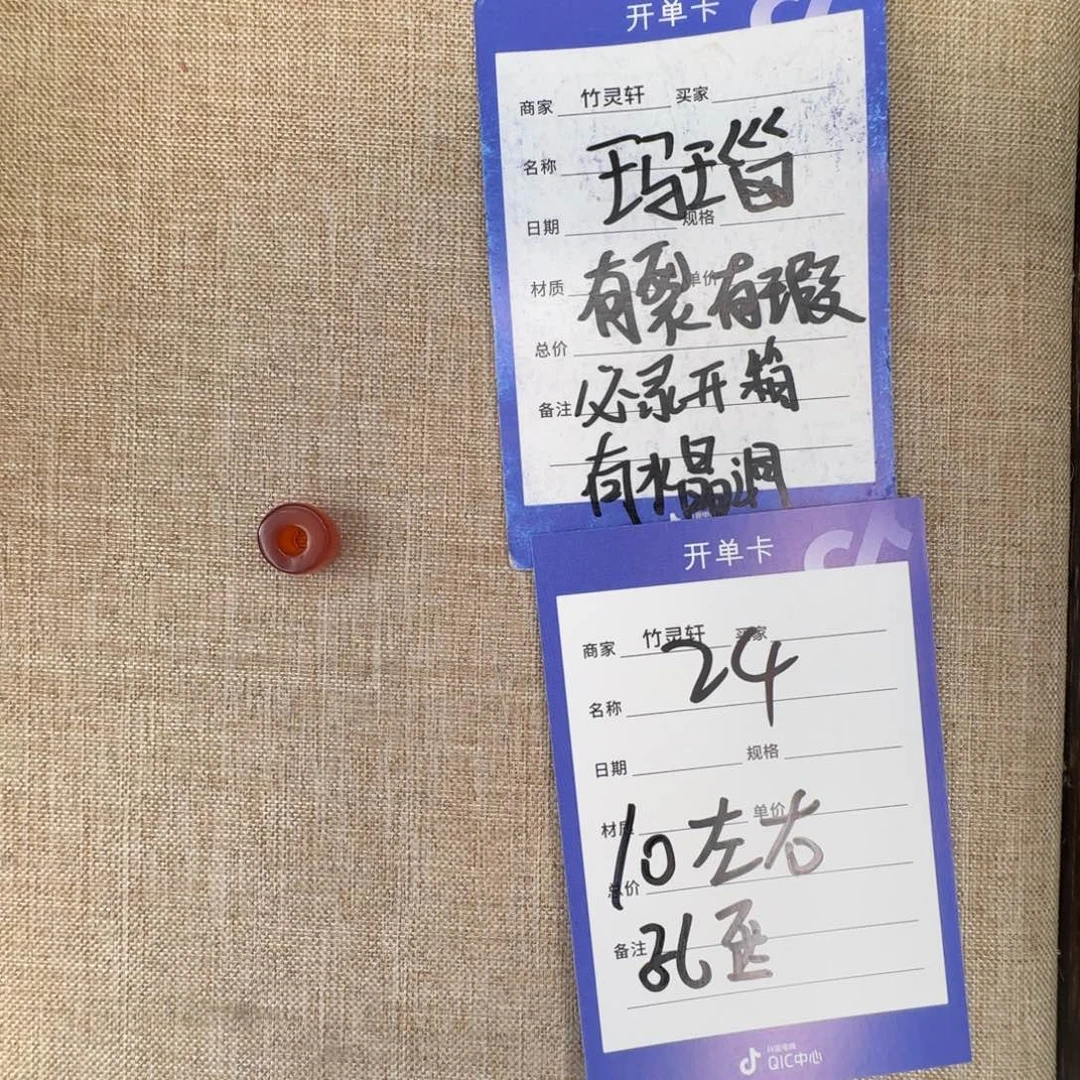 开单卡
商家 竹灵轩 买家
名称 玛瑙
日期 规格
材质 有裂有瑕 单价
总价
备注 必录开箱
有水晶洞
开单卡
商家 竹灵轩 买家
24
名称
日期 规格
材质 10左右 单价
总价
备注 孔歪
抖音电商
QIC中心